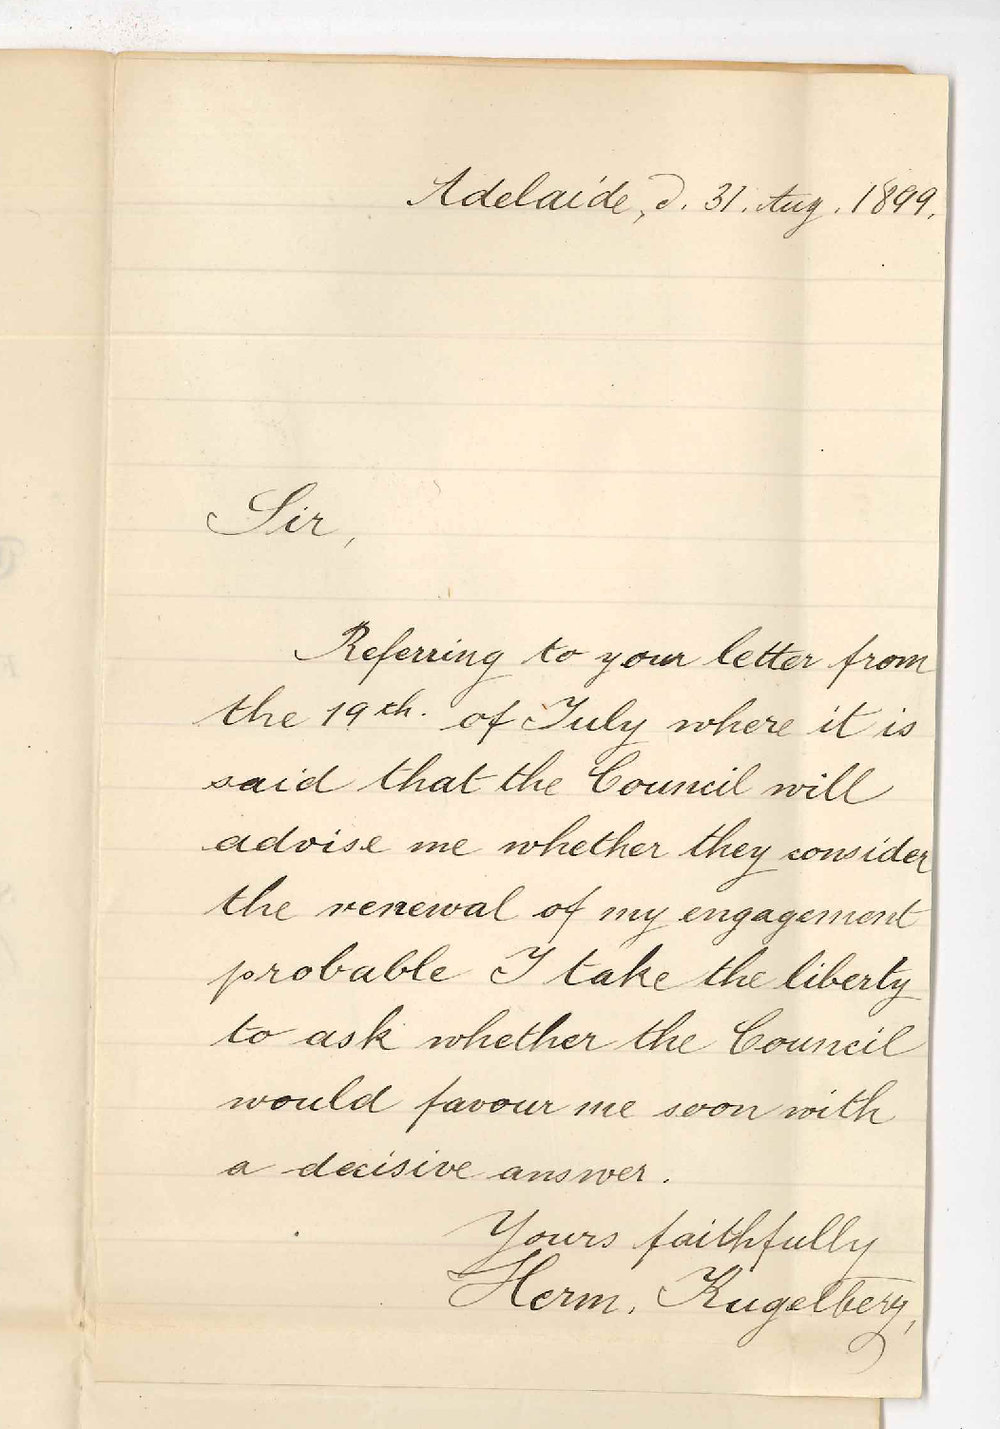 Adelaide, d. 31. Aug. 1899.
Sir,
Referring to your letter from
the 19th. of July where it is
said that the Council will
advise me whether they consider
the renewal of my engagement
probable I take the liberty
to ask whether the Council
would favour me soon with
a decisive answer.
Yours faithfully
Herm. Kugelberg,